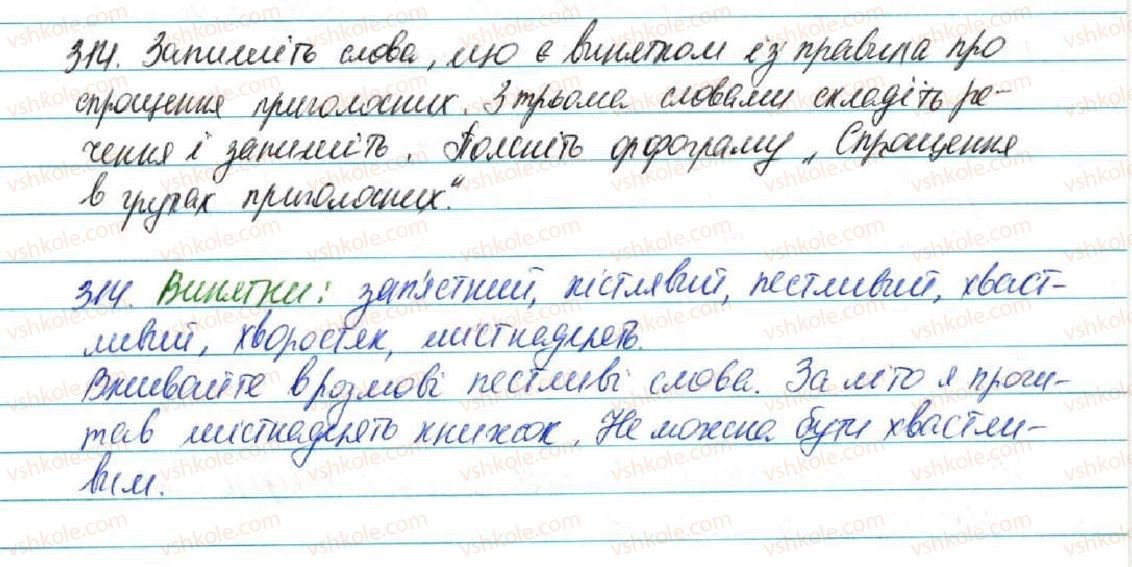 314. Запишіть слова, що є винятком із правила про
спрощення приголосних. З трьома словами складіть ре-
чення і запишіть. Поясніть орфограму „Спрощення
в групах приголосних."
314. Винятки: зап'ястний, кістлявий, пестливий, хваст-
ливий, хворостняк, шістнадцять.
Вживайте в розмові пестливі слова. За літо я прочи-
тав шістнадцять книжок. Не можна бути хвастли-
вим.